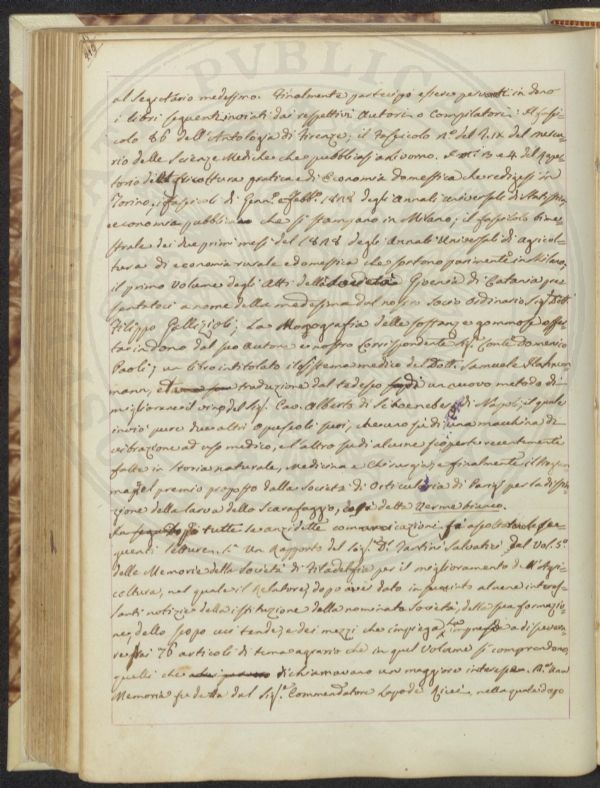 al Segretario medesimo. Finalmente partecipò essere pervenuti in dono
i libri seguenti inviati dai respettivi Autori o Compilatori: Il fasci-
colo 86 dell'Antologia di Firenze, il Fascicolo n.º del T. IX del Mercu-
rio delle Scienze Mediche che pubblicasi a Livorno. I N.i 3 e 4 del Reper-
torio di Agricoltura pratica e di Economia domestica che redigesi in
Torino, i fascicoli di Genn.º e Febb.º 1828 degli Annali universali di Statistica,
economia pubblica che si stampano in Milano; il fascicolo bime-
strale dei due primi mesi del 1828 degli Annali Universali di agricol-
tura di economia rurale e domestica che sortono parimente in Milano;
il primo Volume degli Atti della Società Gioenia di Catania pre-
sentatoci a nome della medesima dal nostro Socio Ordinario Sig. Dott.
Filippo Gallizioli; La Monografia delle sostanze gommose offer-
ta in dono dal suo Autore e nostro Corrispondente Sig. Conte Domenico
Paoli; un libro intitolato il sistema medico del Dott. Samuele Hahne-
mann, e traduzione dal tedesco di un nuovo metodo di
migliorare il vino del Sig. Cav. Alberto di Schoenberg di Napoli, il quale
inviò pure due altri Opuscoli suoi, che uno su di una macchina di
vibrazione ad uso medico, e l'altro su di alcune scoperte recentemente
fatte in Storia naturale, Medicina e Chirurgia; e finalmente il
del premio proposto dalla Società di Orticultura di Parigi per la distru-
zione della larva dello Scarafaggio, colà detta Verme bianco.
In seguito di tutte le anzidette comunicazioni fu ascoltato le se-
guenti letture. 1.º Un Rapporto del Sig. D. Tartini Salvatici sul Vol. 5.º
delle Memorie della Società di Filadelfia per il miglioramento dell'Agri-
coltura, nel quale il Relatore, dopo aver dato in succinto alcune interes-
santi notizie della istituzione della nominata Società, della sua formazio-
ne, dello scopo cui tende, e dei mezzi che impiega, imprese a discuter-
re fra i 76 articoli di tema agrario che in quel Volume si comprendono,
quelli che richiamavano un maggiore interesse. 2.º Una
Memoria fu detta dal Sig. Commendatore Lapo de' Ricci, nella quale dopo